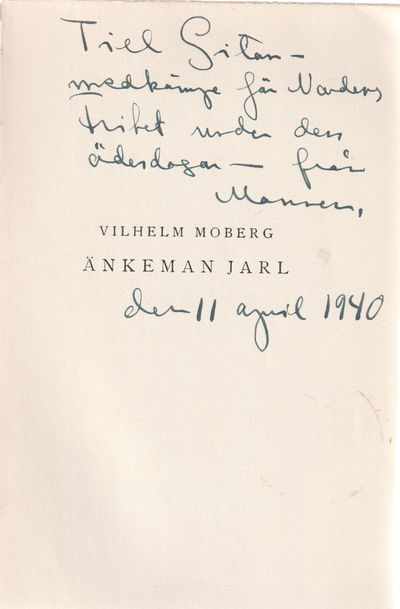 Till Gitan –
medkämpe för Nordens
frihet under dess
ödesdagar – från
VILHELM MOBERG
ÄNKEMAN JARL
den 11 april 1940